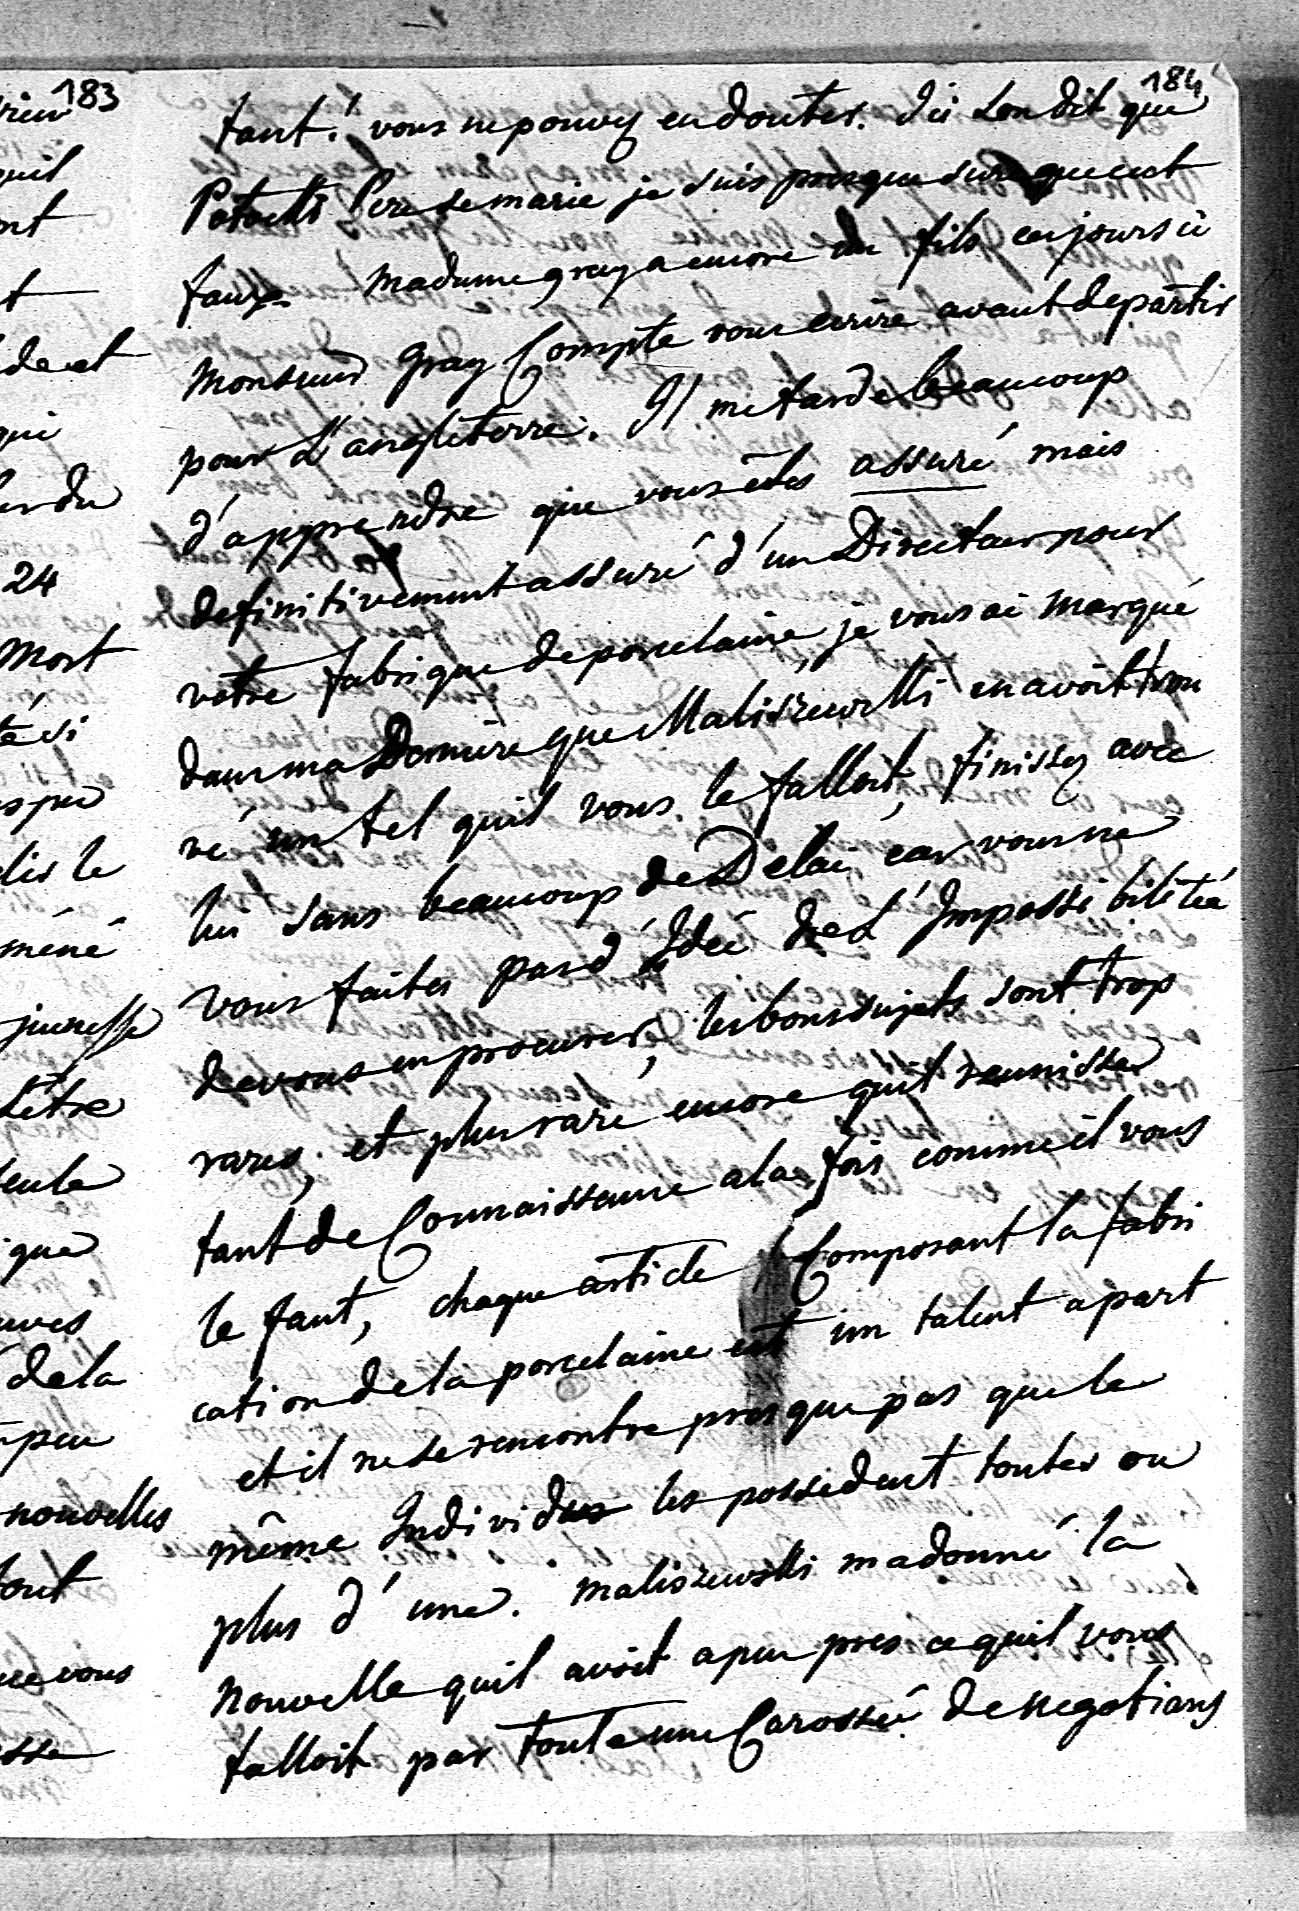 183
184
rien
quil
nt
t
de et
qui
erdu
24
Mort
té si
es peu
dis le
méné
jeunesse
Lêtre
seule
que
uves
de la
peu
nouvelles
tout
ue vous
sse
tant! vous ne pouvez en douter. Ici Lon dit que
Pototki Pere se marie je suis presque sure que cest
faux. Madame gray a encore un fils ces jours ci
Monsieur Gray Compte vous ecrire avant departir
pour L'angleterre. Il me tarde beaucoup
d'apprendre que vous êtes assuré mais
definitivement assuré d'un Directeur pour
votre fabrique de porcelaine, je vous ai marqué
dans ma Derniere que Maliszewski en avoit trou
vé un tel quil vous le falloit, finissez avec
lui sans beaucoup de Délai, car vous ne
vous faites pas d'Idée de L'Impossibilitéé
de vous en procurer, les bons sujets sont trop
rares, et plus rare encore quil reunisse
tant de Connaissance a la fois comme il vous
le faut, chaque article Composant la fabri
cation de la porcelaine est un talent apart
et il ne se rencontre presque pas que le
même Individus les possedent toutes ou
plus d'une. Maliszewski ma donné la
nouvelle quil avoit apeu pres ce quil vous
falloit par toute une Carossée de negotians